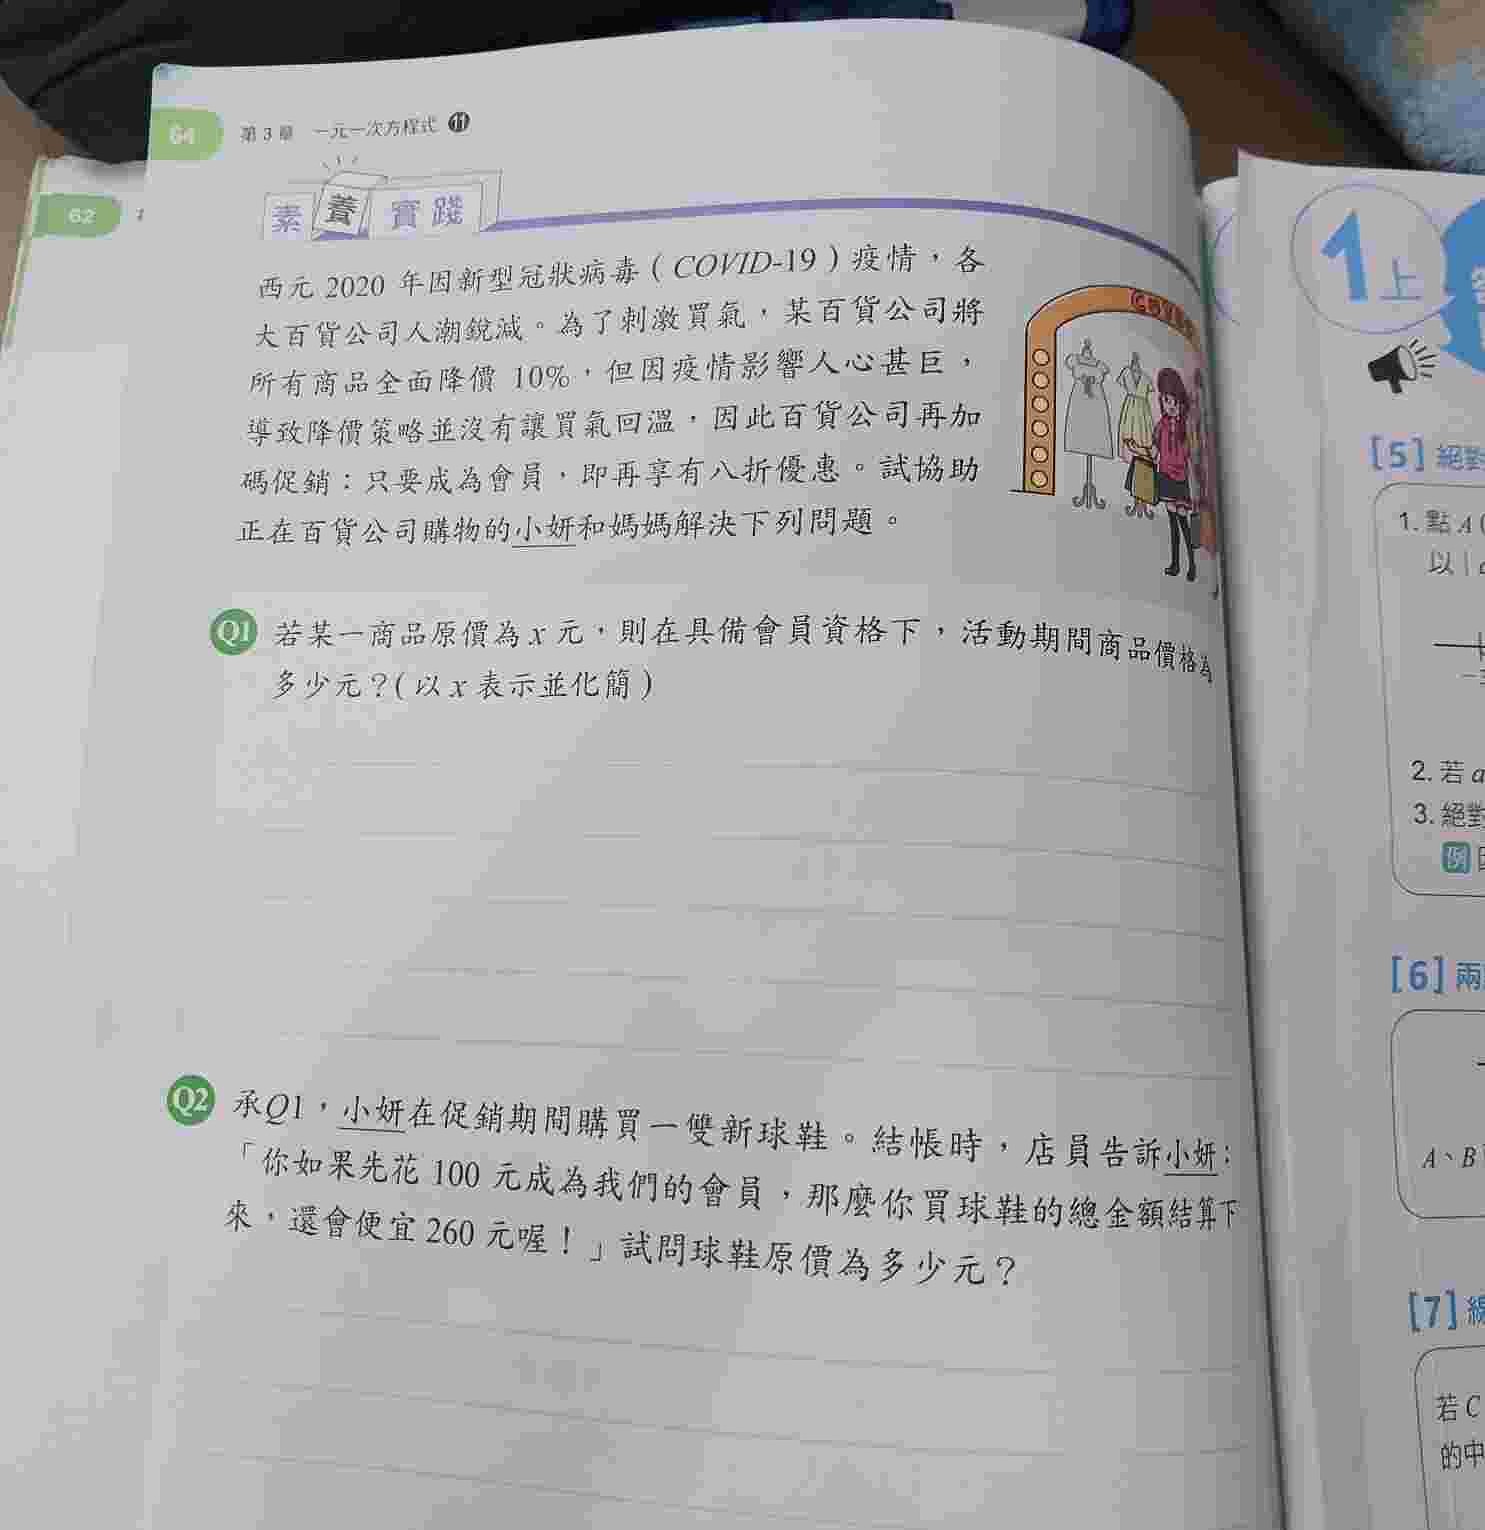 64 第3章 一元一次方程式 11
62
素養實踐
西元 2020 年因新型冠狀病毒(COVID-19)疫情,各
大百貨公司人潮銳減。為了刺激買氣,某百貨公司將
所有商品全面降價 10%,但因疫情影響人心甚巨,
導致降價策略並沒有讓買氣回溫,因此百貨公司再加
碼促銷:只要成為會員,即再享有八折優惠。試協助
正在百貨公司購物的小妍和媽媽解決下列問題。
Q1 若某一商品原價為 x 元,則在具備會員資格下,活動期間商品價格為
多少元?(以 x 表示並化簡)
Q2 承Q1,小妍在促銷期間購買一雙新球鞋。結帳時,店員告訴小妍:
「你如果先花 100 元成為我們的會員,那麼你買球鞋的總金額結算下
來,還會便宜 260 元喔!」試問球鞋原價為多少元?
1上
[5] 絕對
1. 點 A(
以 |
2. 若 a
3. 絕對
例
[6] 兩
A、B
[7] 線
若 C
的中